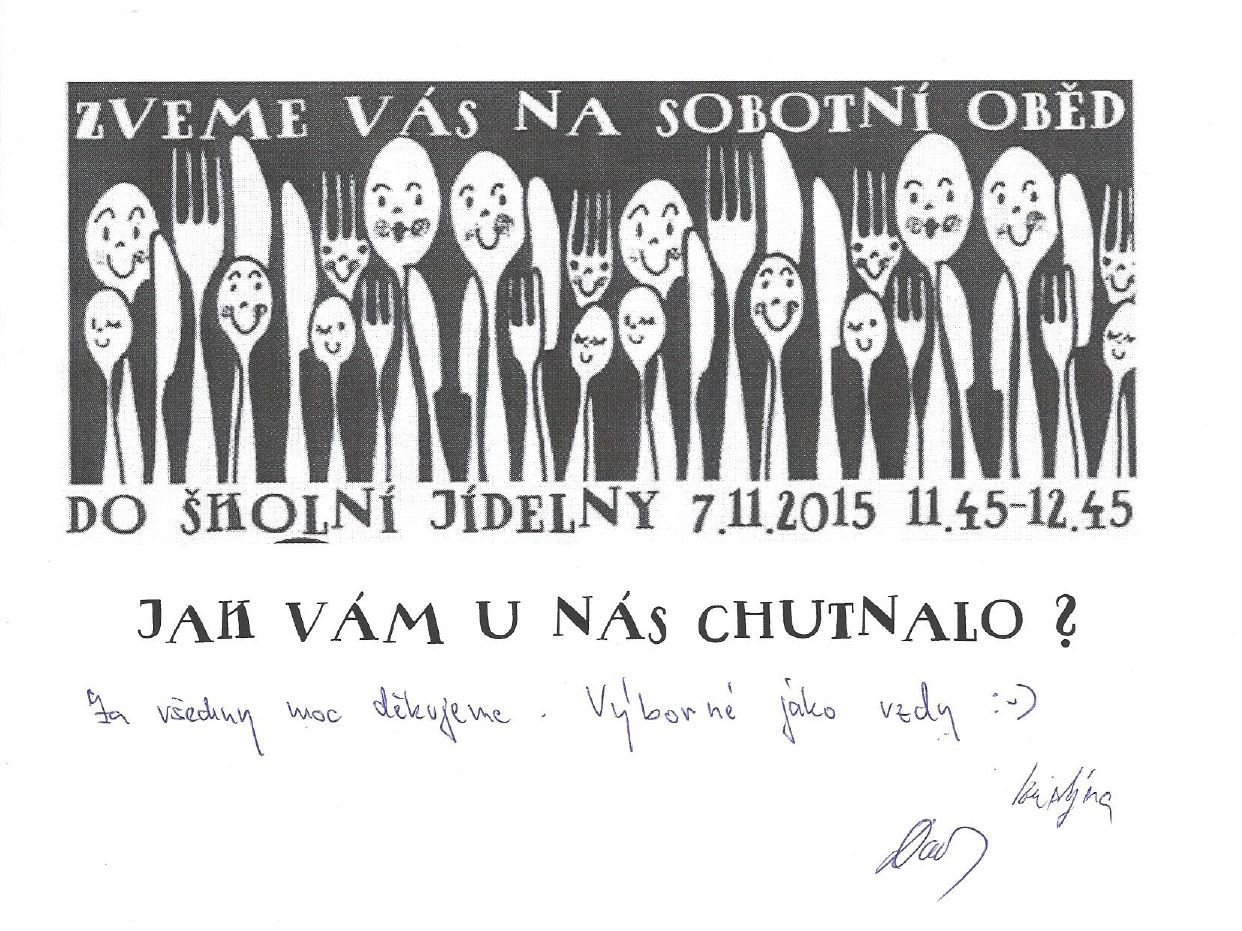 ZVEME VÁS NA SOBOTNÍ OBĚD
DO ŠKOLNÍ JÍDELNY 7.11.2015 11.45-12.45
JAK VÁM U NÁS CHUTNALO ?
Za všechny moc děkujeme. Výborné jáko vzdy :-)
Kristýna